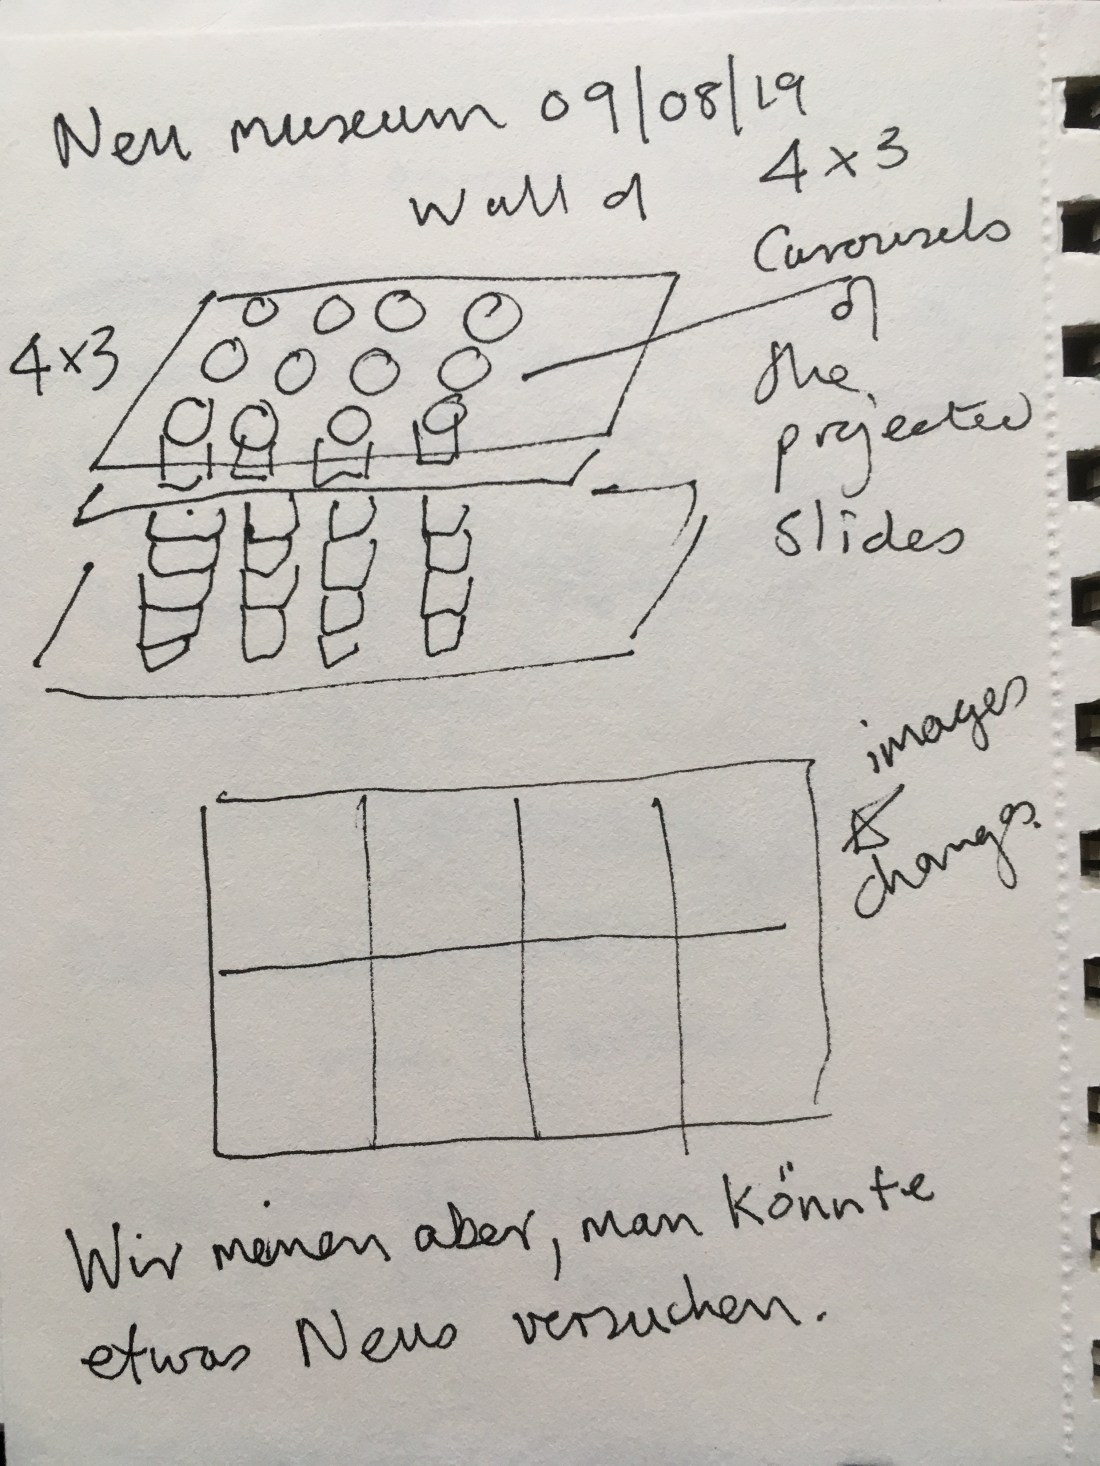 Neu museum 09/08/19
Wall of 4x3
Carousels
of
the
projected
slides
4x3
images
change.
Wir meinen aber, man könnte
etwas Neus versuchen.